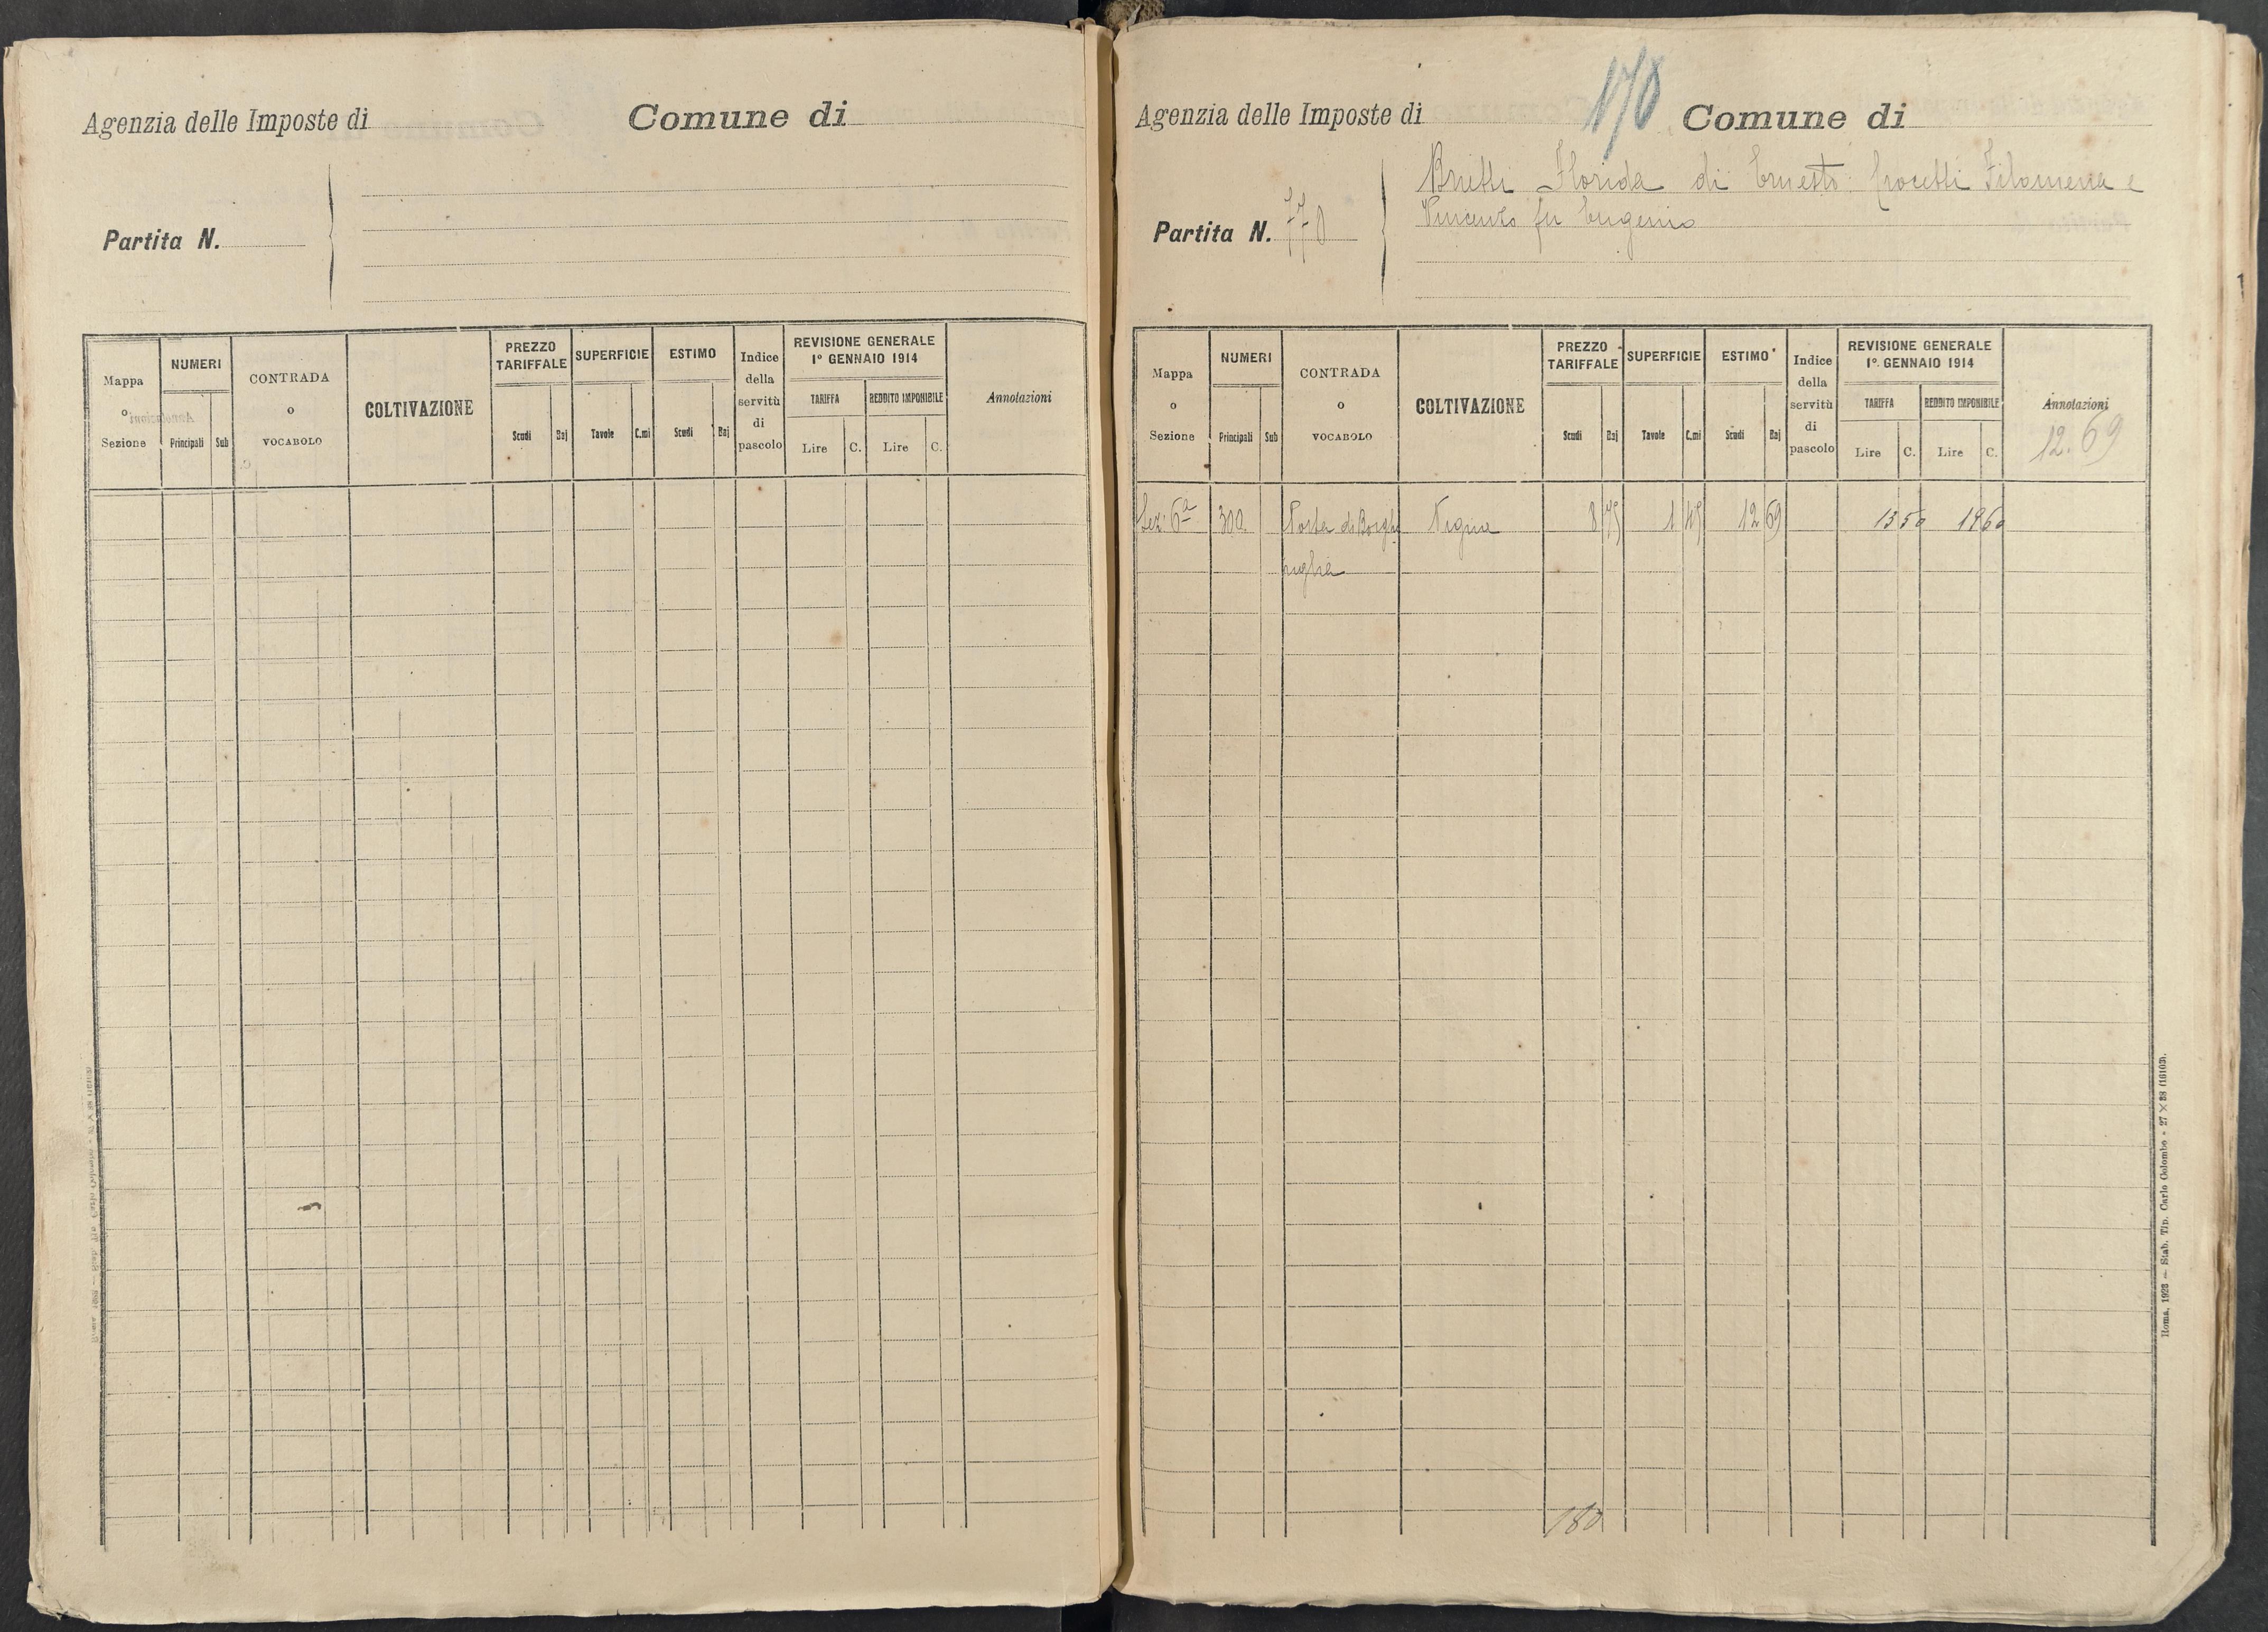 Agenzia delle Imposte di
Comune di
Partita N.
Mappa o Sezione
NUMERI
Principali
Sub
CONTRADA o VOCABOLO
COLTIVAZIONE
PREZZO TARIFFALE
Scudi
Baj
SUPERFICIE
Tavole
C.mi
ESTIMO
Scudi
Baj
Indice della servitù di pascolo
REVISIONE GENERALE
1º GENNAIO 1914
TARIFFA
REDDITO IMPONIBILE
Lire
C.
Lire
C.
Annotazioni
170
Agenzia delle Imposte di
Comune di
Partita N. 770
Florida di Ernesto Filomena e
Vincenzo fu Eugenio
Mappa o Sezione
NUMERI
Principali
Sub
CONTRADA o VOCABOLO
COLTIVAZIONE
PREZZO TARIFFALE
Scudi
Baj
SUPERFICIE
Tavole
C.mi
ESTIMO
Scudi
Baj
Indice della servitù di pascolo
REVISIONE GENERALE
1º GENNAIO 1914
TARIFFA
REDDITO IMPONIBILE
Lire
C.
Lire
C.
Annotazioni
12.69
Sez. 6ª 300 Vigna 8 75 1 45 12 69 13 50 19 60
180
Roma, 1923 — Stab. Tip. Carlo Colombo - 27 × 38 (16103).